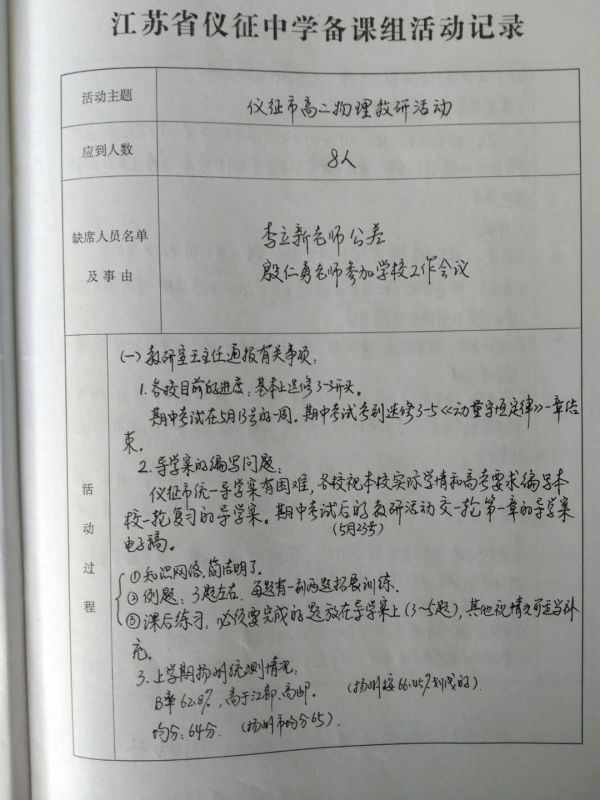 江苏省仪征中学备课组活动记录
活动主题
仪征市高二物理教研活动
应到人数
8人
缺席人员名单
及事由
李立新老师公差
殷仁勇老师参加学校工作会议
活动过程
(一)教研室王主任通报有关事项:
1.各校目前的进度,基本上选修3-3开头。
期中考试在5月13号的一周。期中考试考到选修3-5《动量守恒定律》一章结
束。
2.导学案的编写问题:
仪征市统一导学案有困难,各校视本校实际学情和高考要求编写本
校一轮复习的导学案。期中考试后的教研活动交一轮第一章的导学案
(5月23号)
电子稿。
①知识网络,简洁明了。
②例题、3题左右、每题有一到两题拓展训练。
③课后练习,必须要完成的题放在导学案上(3~5题),其他视情况可适当补
充。
3.上学期扬州统测情况:
B率62.8%,高于江都、高邮。(扬州按66.45%划线的)
均分:64分。(扬州市均分65)